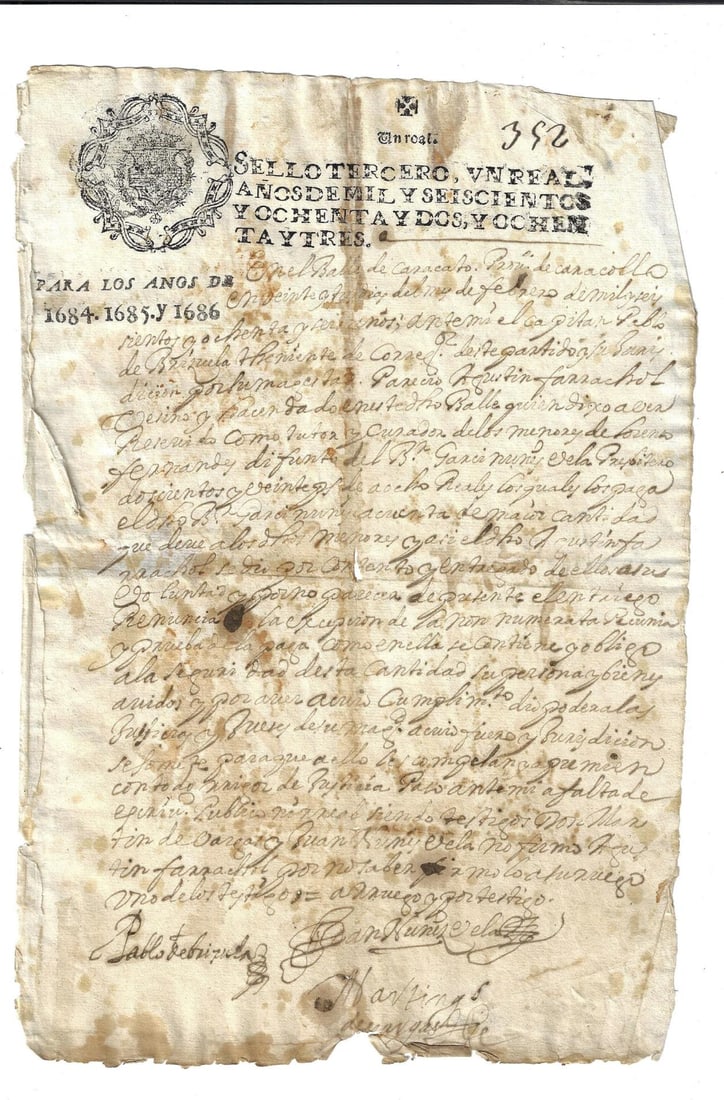 Un real.
352
SELLO TERCERO, VN REAL,
AÑOS DE MIL Y SEISCIENTOS
Y OCHENTA Y DOS, Y OCHEN
TA Y TRES.
PARA LOS AÑOS DE
1684. 1685. y 1686
En el Balle de Caracato. Proua. de Caracollo
en veinte y del mes de febrero de mil y seis
sientos y ochenta y seis años; ante mi el capitan Pablo
de Brizuela theniente de Correg.r deste partido y su Juris
dicion por su magestad. Parecio Agustin farrachol
Vesino y hacendado en este dho Balle quien dixo aver
Reseuido como tutor y Curador de los menores de Loreno
fernandes difunto del B.r Garci nuñes Vela Presbitero
doscientos y veinte ps de a ocho Reales los quales los paga
el dho B.r Garci nuñes a cuenta de maior cantidad
que deue a los dhos menores y asi el dho Agustin fa
rrachol se dio por contento y entregado de ellos a su
boluntad y por no parecer de presente el entriego
Renuncia la excepcion de la non numerata pecunia
y prueba de la paga como en ella se contiene y obligo
a la seguridad desta cantidad su persona y bienes
auidos y por auer a cuio Cumplim.to dio poder a las
Justicias y Jueses de su mag.d a cuio fuero y Jurisdicion
se somete para que a ello les compelan y apremien
con todo rrigor de Justicia Paso ante mi a falta de
escriu.o Publico ni rreal siendo testigos Don Mar
tin de Vargas y Juan Nuñes Vela no firmo Agus
tin farrachol por no saber firmolo a su ruego
Vno de los testigos = a Rruego y por testigo.
Pablo de brizuela
Juan Nuñes Vela
Martin
de vargas